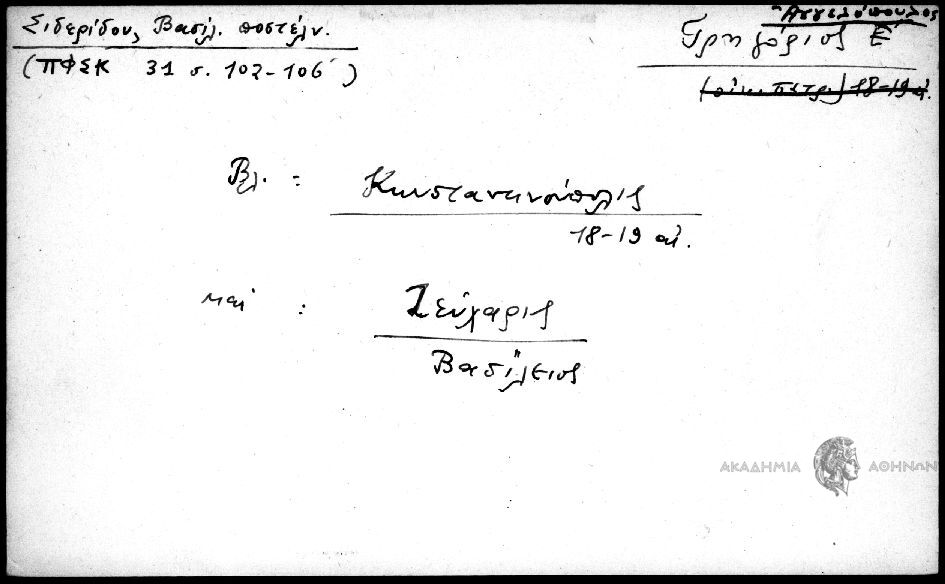 Σιδερίδου, Βασίλ. ποστέλν.
(ΠΦΣΚ 31 σ. 102-106)
Ἀγγελόπουλος
Γρηγόριος Ε΄
(οἰκ. πετρ.) 18-19 αἰ.
Βλ. : Κωνσταντινούπολις
18-19 αἰ.
καί : Ζεύγαρις
Βασίλειος
ΑΚΑΔΗΜΙΑ ΑΘΗΝΩΝ